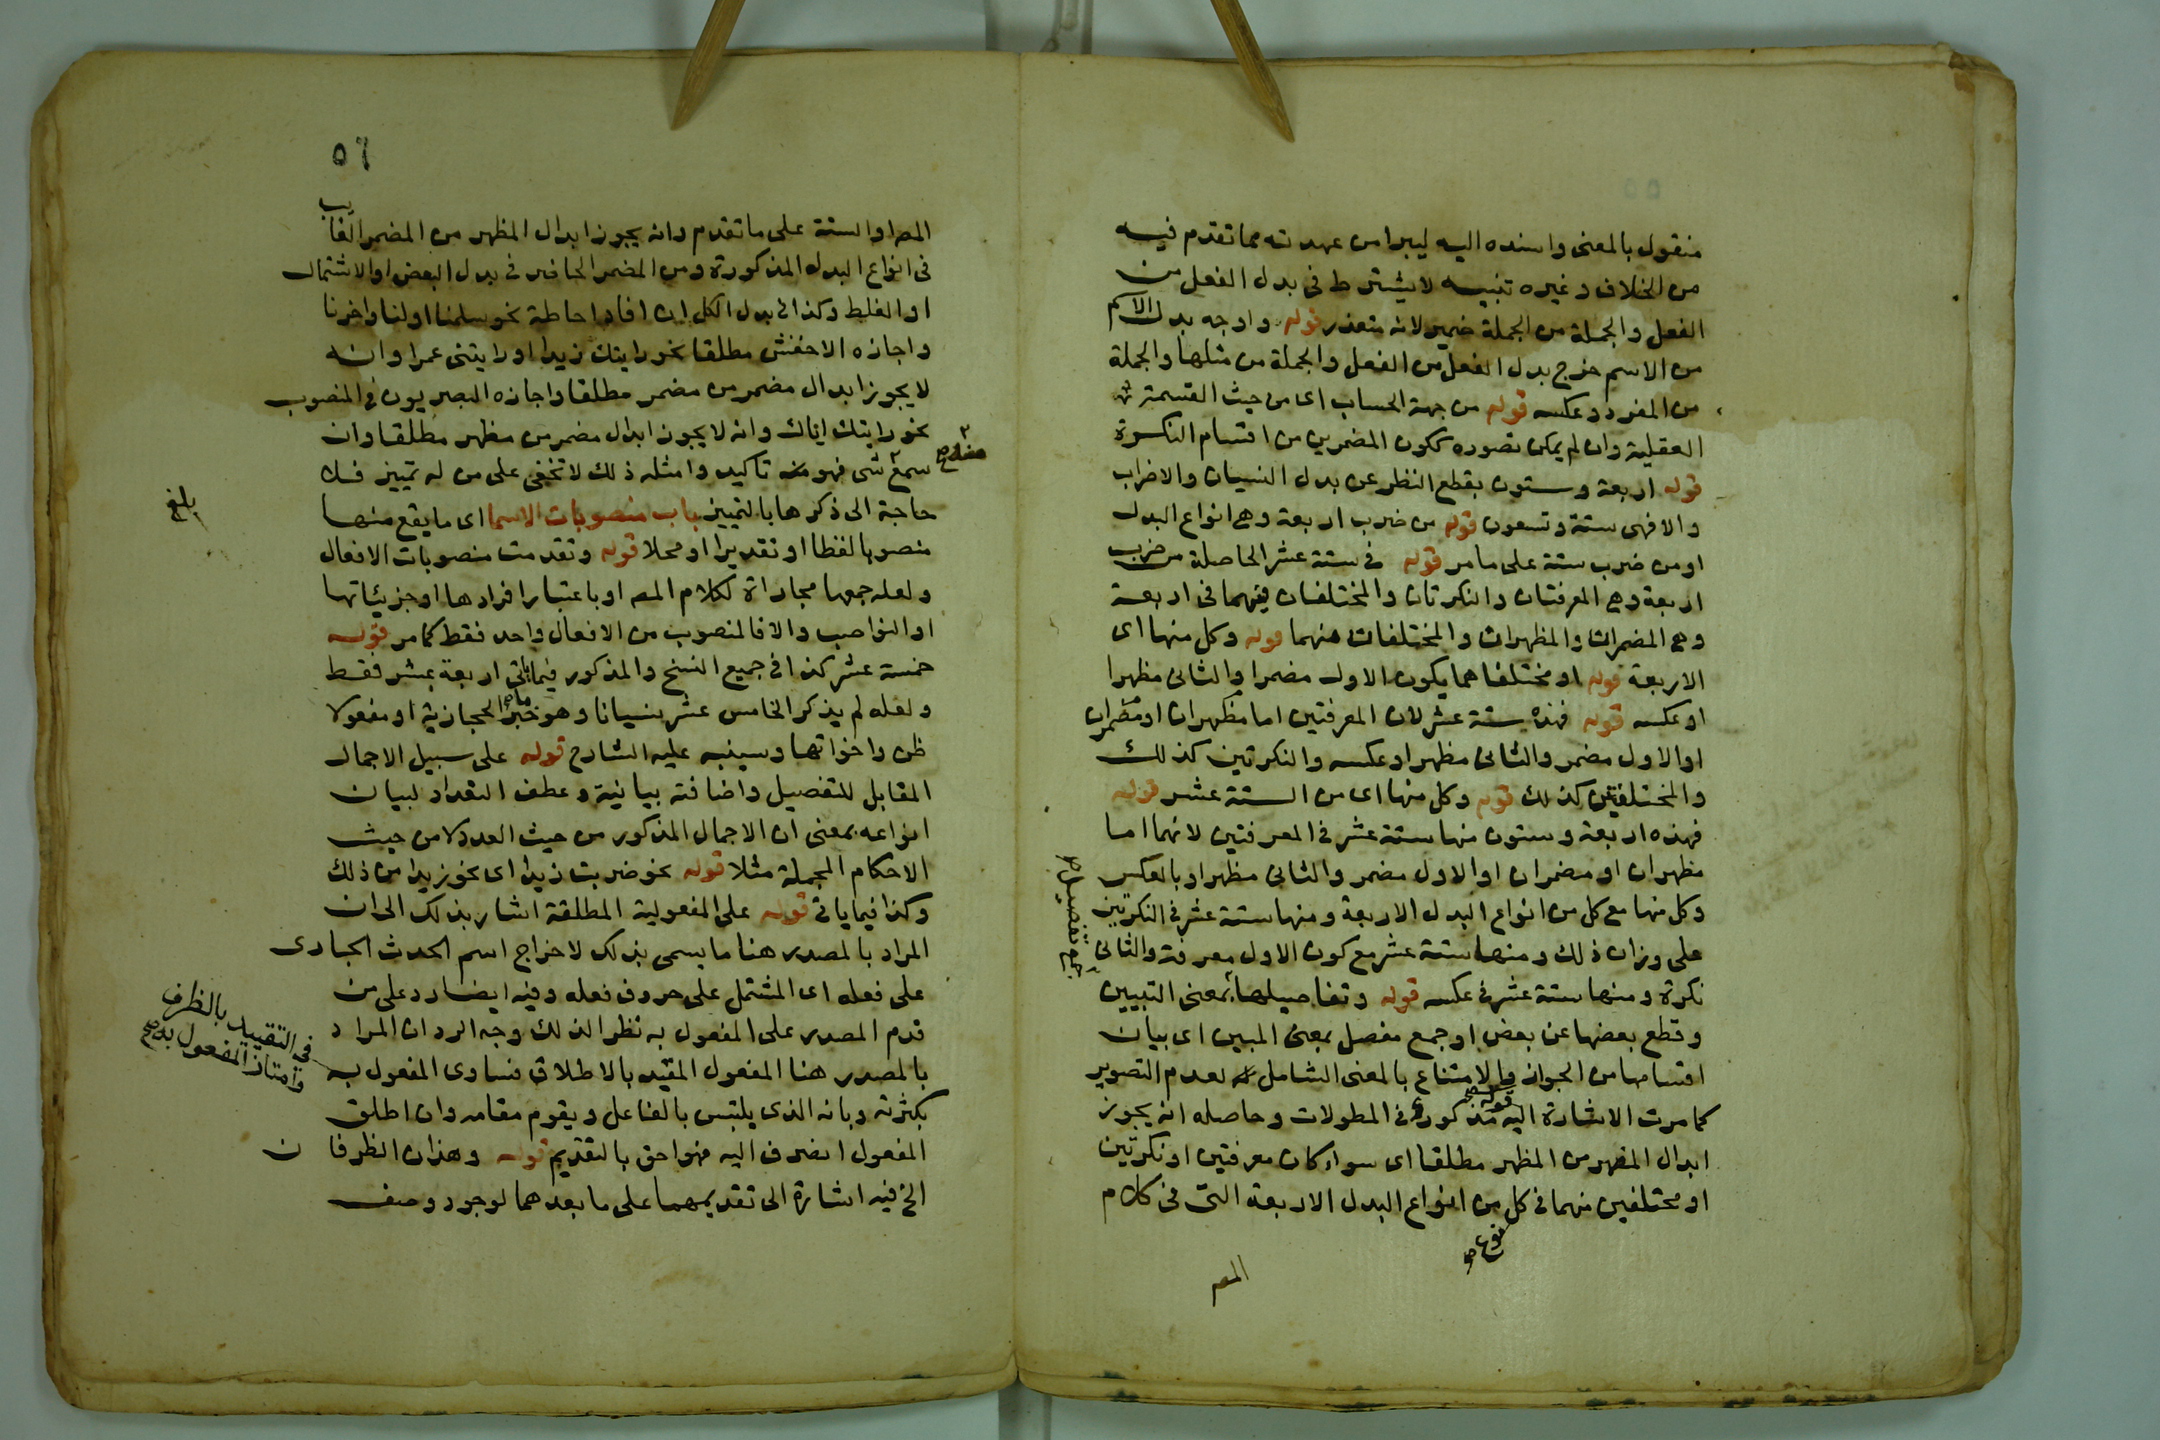 منقول بالمعنى واسنده اليه ليبرا من عهدته مما تقدم فيه
من الخلاف وغيره تنبيه لا يشترط فى بدل الفعل من
الفعل والجملة من الجملة ضمير لانه متعذر قوله واوجه بدل الاسم
من الاسم خرج بدل الفعل من الفعل والجملة من مثلها والجملة
من المفرد وعكسه قوله من جهة الحساب اى من حيث القسمة
العقلية وان لم يمكن تصوره ككون المضمرين من اقسام النكرة
قوله اربعة وستون بقطع النظر عن بدل النسيان والاضراب
والا فهى ستة وتسعون قوله من ضرب اربعة وهى انواع البدل
او من ضرب ستة على ما مر قوله فى ستة عشر الحاصلة من ضرب
اربعة وهى المعرفتان والنكرتان والمختلفان فيهما فى اربعة
وهى المضمران والمظهران والمختلفان منهما قوله وكل منها اى
الاربعة قوله او مختلفا هما يكون الاول مضمرا والثانى مظهرا
او عكسه قوله فهذه ستة عشر لان المعرفتين اما مظهران او مضمران
او الاول مضمر والثانى مظهر او عكسه والنكرتين كذلك
والمختلفين كذلك قوله وكل منها اى من الستة عشر قوله
فهذه اربعة وستون منها ستة عشر فى المعرفتين لانهما اما
مظهران او مضمران او الاول مضمر والثانى مظهر او بالعكس
وكل منها مع كل من انواع البدل الاربعة ومنها ستة عشر فى النكرتين
على وزان ذلك ومنها ستة عشر مع كون الاول معرفة والثانى
نكرة ومنها ستة عشر فى عكسه قوله وتفاصيلها بمعنى التبيين
جمع تفصيل صح
وقطع بعضها عن بعض او جمع مفصل بمعنى المبين اى بيان
اقسامها من الجواز والامتناع بالمعنى الشامل لعدم التصوير
كما مرت الاشارة اليه قوله مذكورة فى المطولات وحاصله انه يجوز
ابدال المظهر من المظهر مطلقا اى سواء كان معرفتين او نكرتين
او مختلفين منهما فى كل من انواع البدل الاربعة التى فى كلام
نوع صح
المص
٥٦
المص او الستة على ما تقدم وانه يجوز ابدال المظهر من المضمر الغايب
فى انواع البدل المذكورة ومن المضمر الحاضر فى بدل البعض او الاشتمال
او الغلط وكذا فى بدل الكل ان افاد احاطة نحو سلمنا اولنا واخرنا
واجازه الاخفش مطلقا نحو رايتك زيدا او رايتنى عمرا وانه
لا يجوز ابدال مضمر من مضمر مطلقا واجازه البصريون فى المنصوب
نحو رايتك اياك وانه لا يجوز ابدال مضمر من مظهر مطلقا وان
سمع شى فهو منه تاكيد وامثلة ذلك لا تخفى على من له تمييز فلا
حاجة الى ذكرها بالتمييز باب منصوبات الاسما اى ما يقع منها
بلغ
منصوبا لفظا او تقديرا او محلا قوله وتقدمت منصوبات الافعال
ولعله جمعها مجاراة لكلام المص او باعتبار افرادها او جزئياتها
او النواصب والا فالمنصوب من الافعال واحد فقط كما مر قوله
خمسة عشر كذا فى جميع النسخ والمذكور فيما ياتى اربعة عشر فقط
ولعله لم يذكر الخامس عشر نسيانا وهو خبر ما الحجازية او مفعولا
ظن واخواتها وسينبه عليه الشارح قوله على سبيل الاجمال
المقابل للتفصيل واضافته بيانية وعطف التعداد لبيان
انواعه بمعنى ان الاجمال المذكور من حيث العدد لا من حيث
الاحكام المجملة مثلا قوله نحو ضربت زيدا اى نحو زيدا من ذلك
وكذا فيما ياتى قوله على المفعولية المطلقة اشار بذلك الى ان
المراد بالمصدر هنا ما يسمى بذلك لاخراج اسم الحدث الجارى
على فعله اى المشتمل على حروف فعله وفيه ايضا رد على من
قدم المصدر على المفعول به نظرا لذلك وجه الرد ان المراد
بالمصدر هنا المفعول المقيد بالاطلاق فساوى المفعول به
فى التقييد بالظرف
وامتاز المفعول به صح
بكثرته وبانه الذى يلتبس بالفاعل ويقوم مقامه وان اطلق
المفعول انصرف اليه فهو احق بالتقديم قوله وهذان الظرفان
الخ فيه اشارة الى تقديمهما على ما بعدهما لوجود وصف